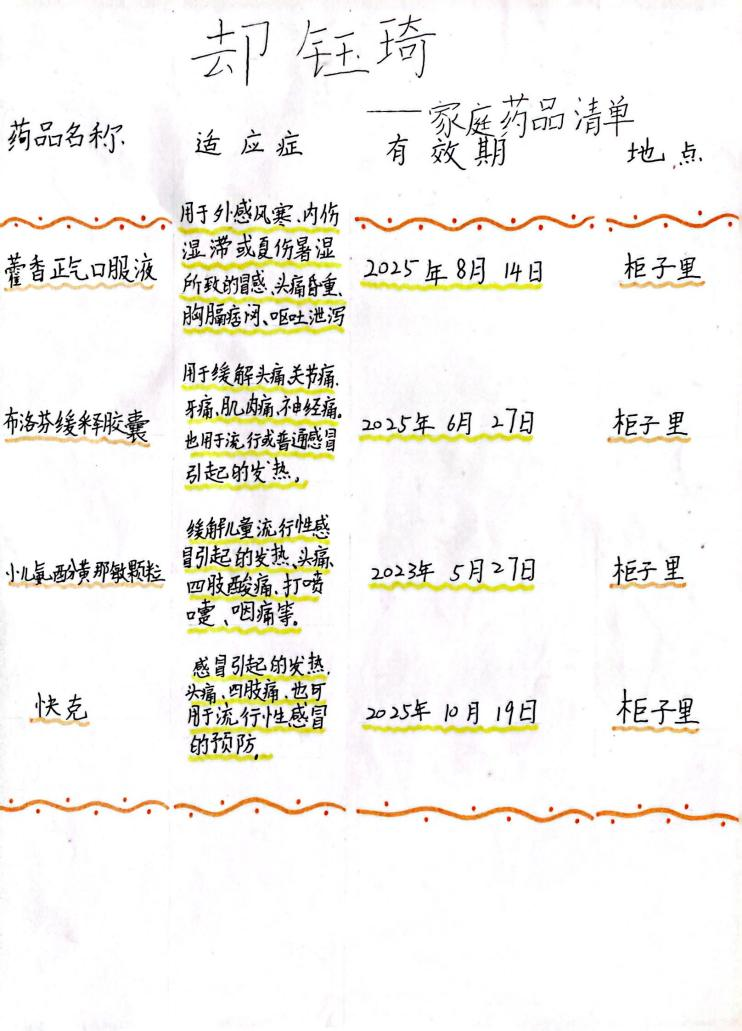 却钰琦
——家庭药品清单
药品名称
适应症
有效期
地点
藿香正气口服液
用于外感风寒、内伤
湿滞或夏伤暑湿
所致的冒感、头痛昏重、
胸膈痞闷、呕吐泄泻
2025年8月14日
柜子里
布洛芬缓释胶囊
用于缓解头痛关节痛、
牙痛、肌肉痛、神经痛。
也用于流行或普通感冒
引起的发热。
2025年6月27日
柜子里
小儿氨酚黄那敏颗粒
缓解儿童流行性感
冒引起的发热、头痛、
四肢酸痛、打喷
嚏、咽痛等。
2023年5月27日
柜子里
快克
感冒引起的发热,
头痛、四肢痛、也可
用于流行性感冒
的预防。
2025年10月19日
柜子里